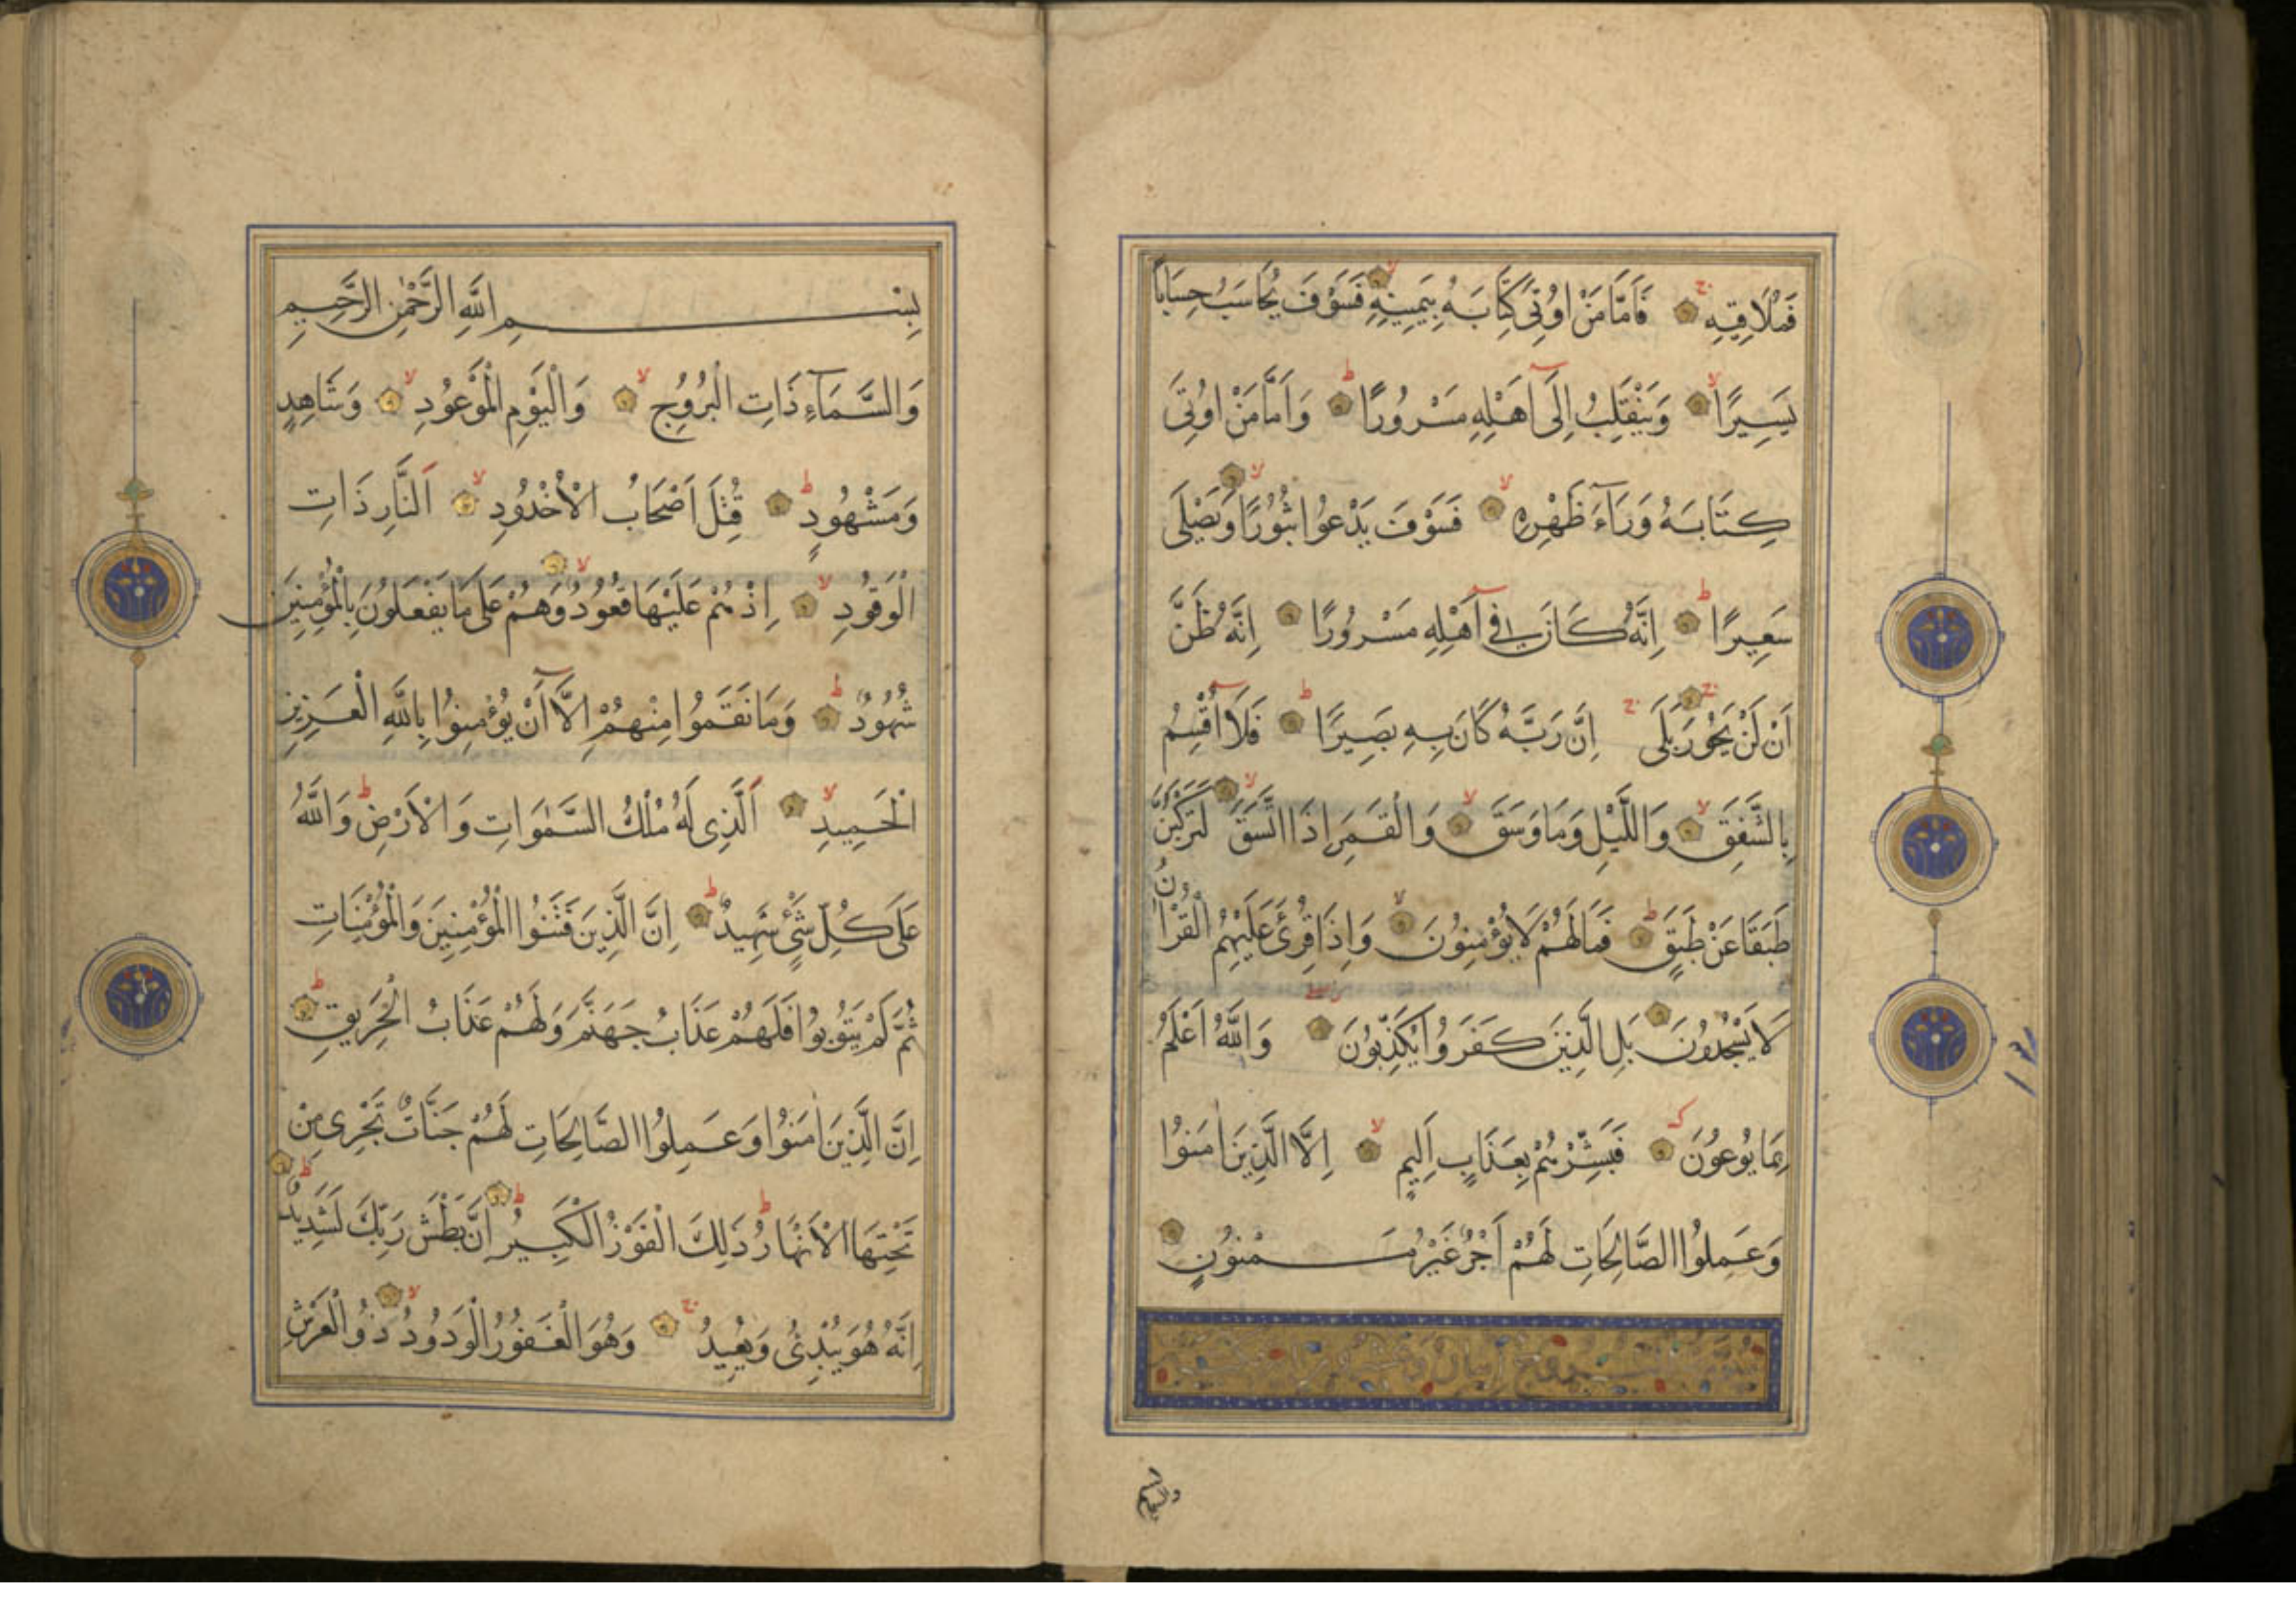 فَمُلَاقِيهِ فَاَمَّا مَنْ اُوتِىَ كِتَابَهُ بِيَمِينِهِ فَسَوْفَ يُحَاسَبُ حِسَابًا
يَسِيرًا وَيَنْقَلِبُ اِلَىٓ اَهْلِهِ مَسْرُورًا وَاَمَّا مَنْ اُوتِىَ
كِتَابَهُ وَرَآءَ ظَهْرِهِ فَسَوْفَ يَدْعُوا ثُبُورًا وَيَصْلَى
سَعِيرًا اِنَّهُ كَانَ فِىٓ اَهْلِهِ مَسْرُورًا اِنَّهُ ظَنَّ
اَنْ لَنْ يَحُورَ بَلَى اِنَّ رَبَّهُ كَانَ بِهِ بَصِيرًا فَلَآ اُقْسِمُ
بِالشَّفَقِ وَاللَّيْلِ وَمَا وَسَقَ وَالْقَمَرِ اِذَا اتَّسَقَ لَتَرْكَبُنَّ
طَبَقًا عَنْ طَبَقٍ فَمَا لَهُمْ لَا يُؤْمِنُونَ وَاِذَا قُرِئَ عَلَيْهِمُ الْقُرْاٰنُ
لَا يَسْجُدُونَ بَلِ الَّذِينَ كَفَرُوا يُكَذِّبُونَ وَاللَّهُ اَعْلَمُ
بِمَا يُوعُونَ فَبَشِّرْهُمْ بِعَذَابٍ اَلِيمٍ اِلَّا الَّذِينَ اٰمَنُوا
وَعَمِلُوا الصَّالِحَاتِ لَهُمْ اَجْرٌ غَيْرُ مَمْنُونٍ
بِسْمِ اللَّهِ الرَّحْمٰنِ الرَّحِيمِ
وَالسَّمَآءِ ذَاتِ الْبُرُوجِ وَالْيَوْمِ الْمَوْعُودِ وَشَاهِدٍ
وَمَشْهُودٍ قُتِلَ اَصْحَابُ الْاُخْدُودِ اَلنَّارِ ذَاتِ
الْوَقُودِ اِذْ هُمْ عَلَيْهَا قُعُودٌ وَهُمْ عَلَى مَا يَفْعَلُونَ بِالْمُؤْمِنِينَ
شُهُودٌ وَمَا نَقَمُوا مِنْهُمْ اِلَّآ اَنْ يُؤْمِنُوا بِاللَّهِ الْعَزِيزِ
الْحَمِيدِ اَلَّذِى لَهُ مُلْكُ السَّمٰوَاتِ وَالْاَرْضِ وَاللَّهُ
عَلَى كُلِّ شَىْءٍ شَهِيدٌ اِنَّ الَّذِينَ فَتَنُوا الْمُؤْمِنِينَ وَالْمُؤْمِنَاتِ
ثُمَّ لَمْ يَتُوبُوا فَلَهُمْ عَذَابُ جَهَنَّمَ وَلَهُمْ عَذَابُ الْحَرِيقِ
اِنَّ الَّذِينَ اٰمَنُوا وَعَمِلُوا الصَّالِحَاتِ لَهُمْ جَنَّاتٌ تَجْرِى مِنْ
تَحْتِهَا الْاَنْهَارُ ذَلِكَ الْفَوْزُ الْكَبِيرُ اِنَّ بَطْشَ رَبِّكَ لَشَدِيدٌ
اِنَّهُ هُوَ يُبْدِئُ وَيُعِيدُ وَهُوَ الْغَفُورُ الْوَدُودُ ذُو الْعَرْشِ